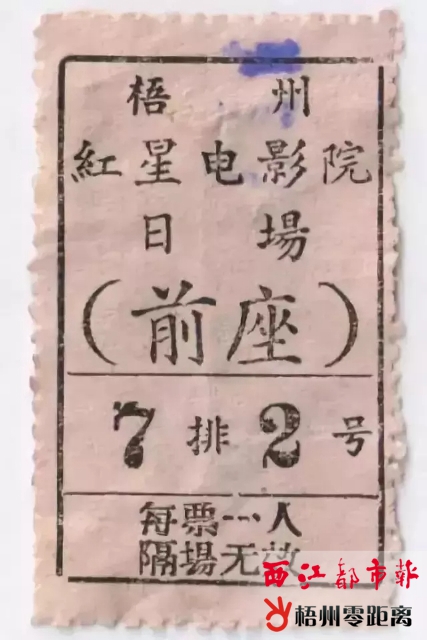 梧州
紅星电影院
日場
(前座)
7排2号
每票一人
隔場无效
西江都市報
梧州零距离